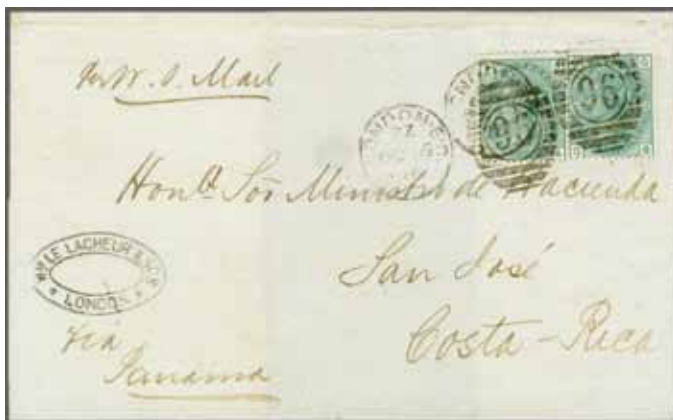 Per W. I. Mail
96 96
LONDON E.C
Honble Sor Ministro de Hacienda
San José
Costa-Rica
WM LE LACHEUR & SON
LONDON
via
Panama